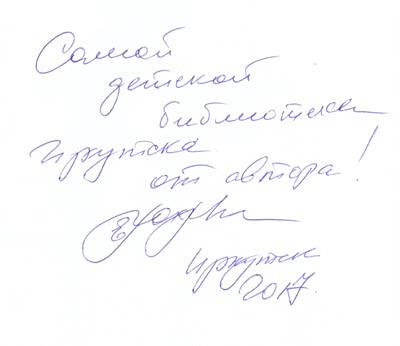 Самой
детской
библиотеке
Иркутска
от автора!
Иркутск
2017.